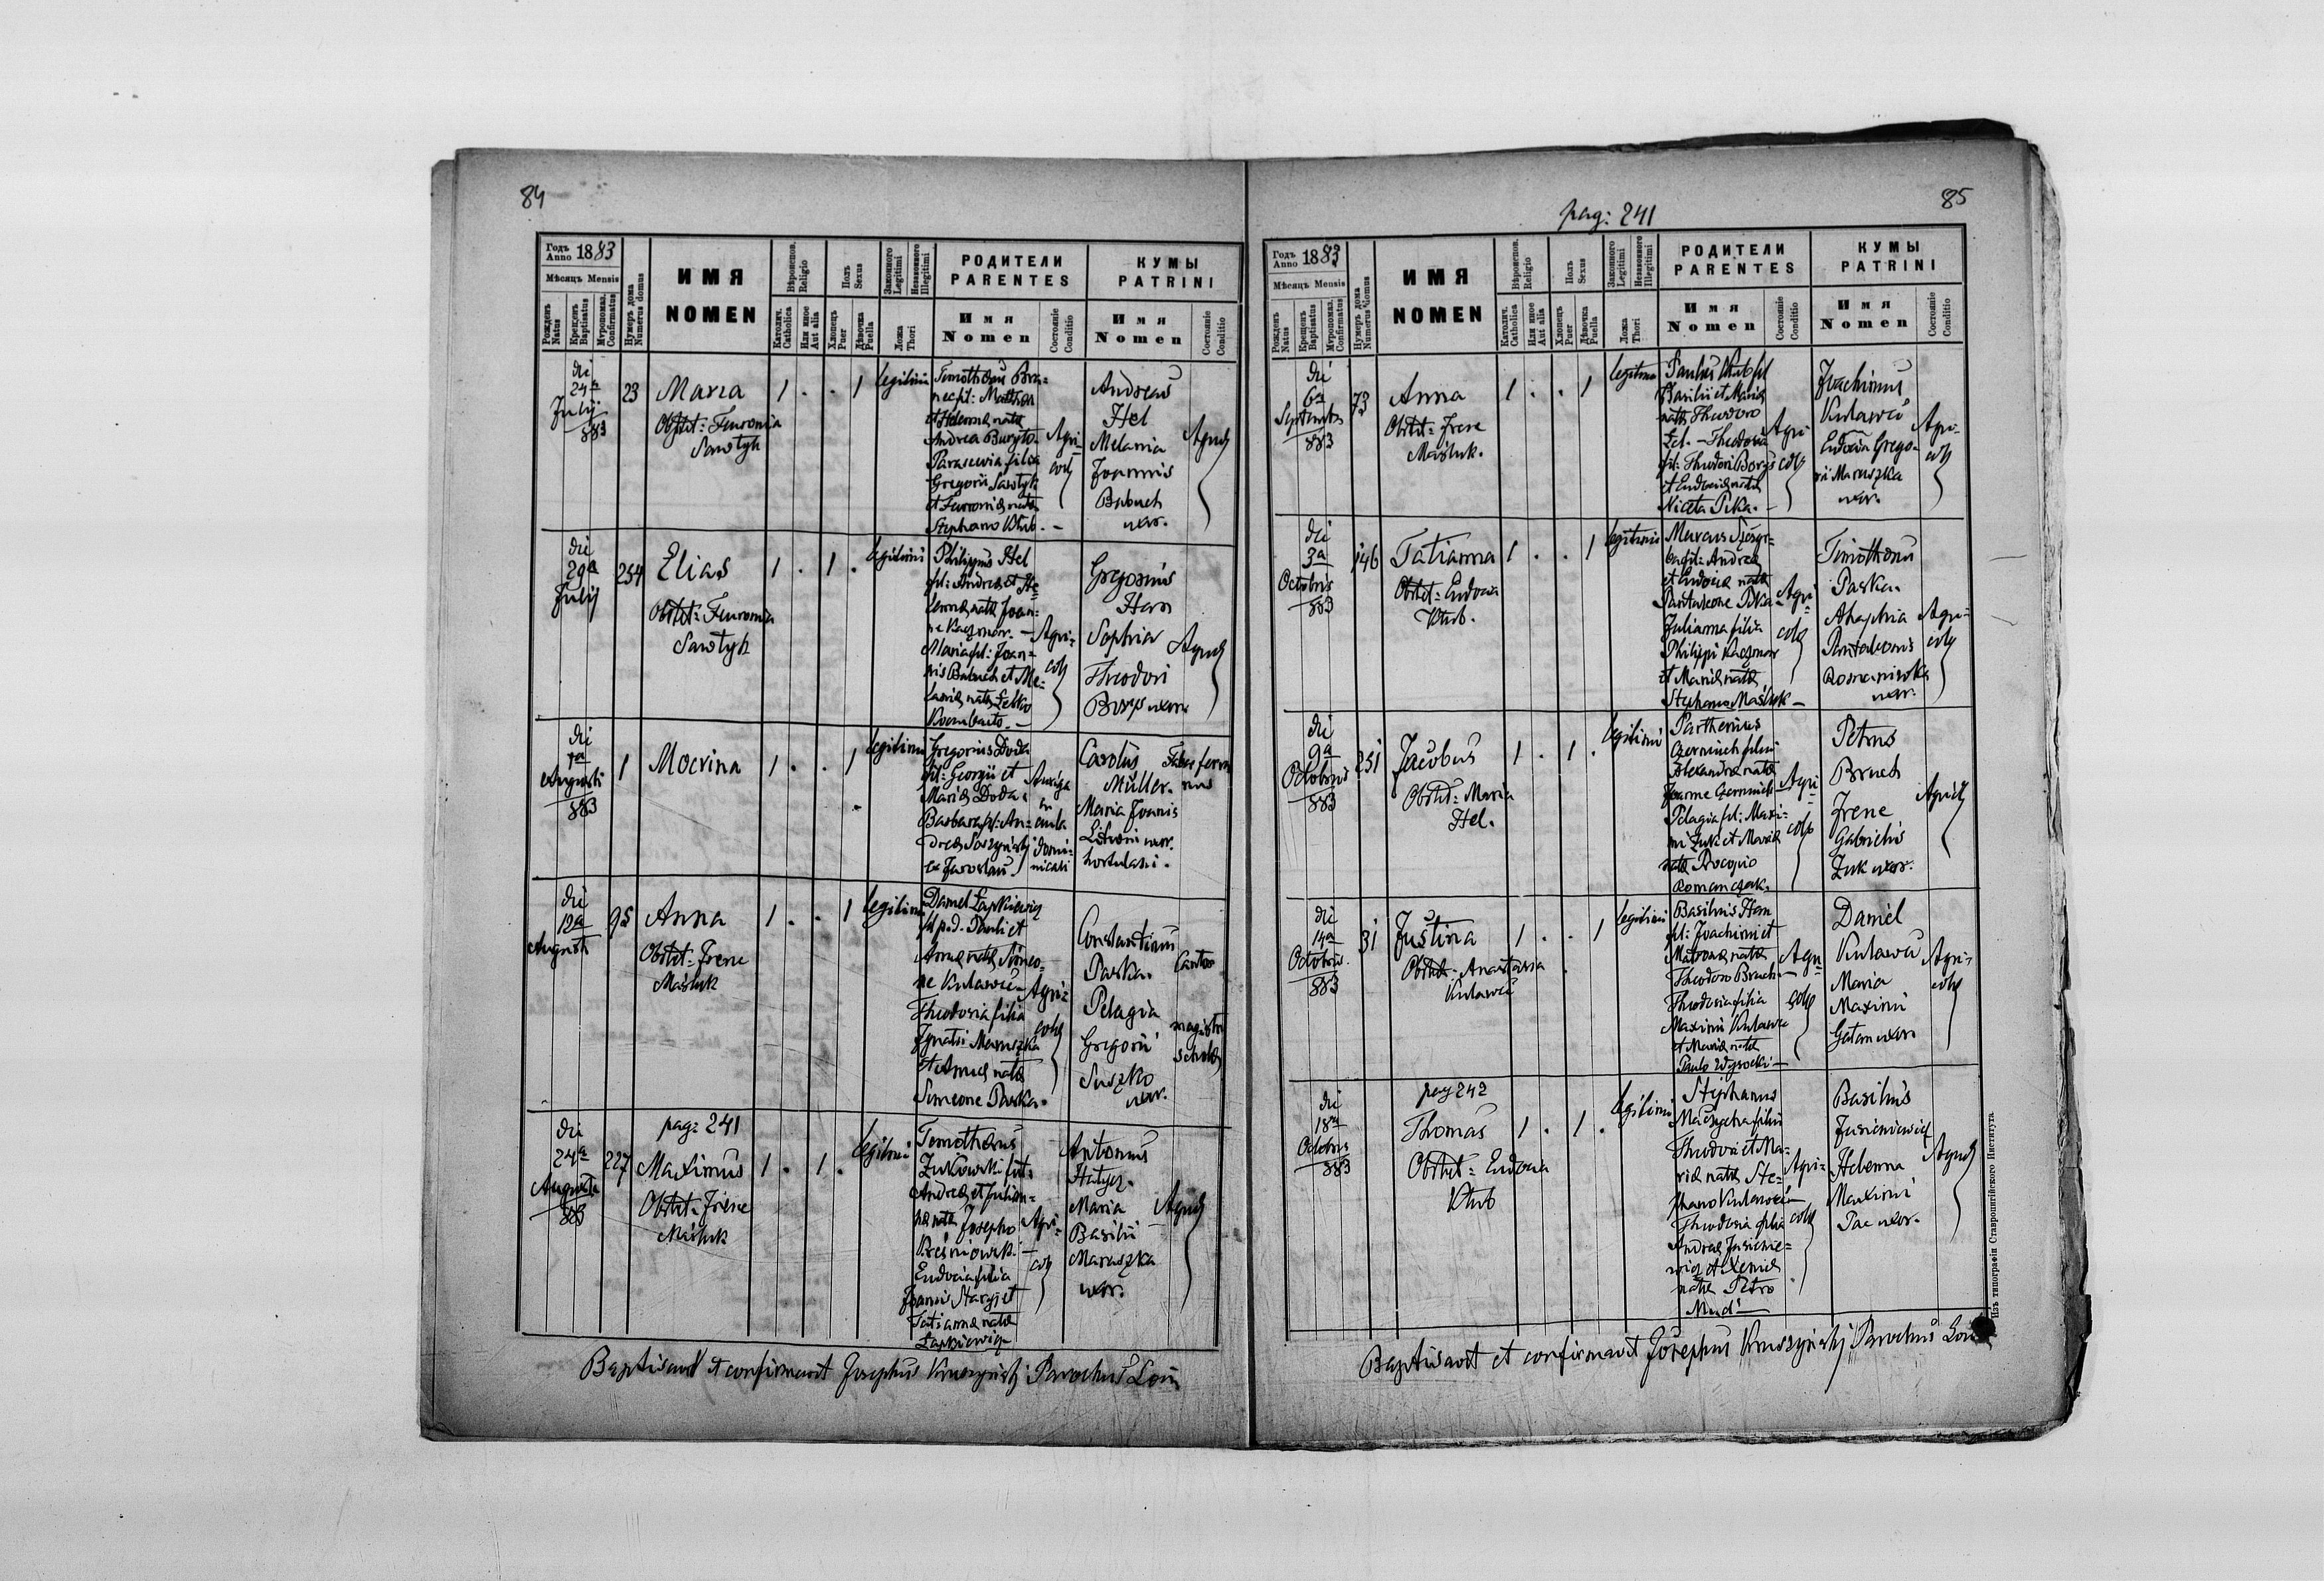 84
Годъ Anno 1883
Мѣсяцъ Mensis
Рожденъ Natus
Крещенъ Baptisatus
Мvропомаз. Confirmatus
Нумеръ дома Numerus domus
ИМЯ
NOMEN
Вѣроиспов. Religio
Католич. Catholica
Или иное Aut alia
Полъ Sexus
Хлопецъ Puer
Дѣвочка Puella
Законного Legitimi
Незаконного Illegitimi
Ложа Thori
РОДИТЕЛИ
PARENTES
Имя
Nomen
Состояніе Conditio
КУМЫ
PATRINI
Имя
Nomen
Состояніе Conditio
die
24a
July
883
23
Maria
Obstet: Feuronia
Sawtyk
1 . . 1
legitimi
Timotheus
fil: Matthaei
et Helenae natae
Andrea
Parascevia filia
Gregorii Sawtyk
et Feuroniae natae
Stephano Kłub. -
Agri=
colae
Andreas
Hel
Melania
Joannis
Babuch
uxor.
Agricolae
die
29a
July
254
Elias
Obstet: Feuronia
Sawtyk
1 . 1 .
legitimi
Philippus Hel
fil: Andreae et He=
lenae natae Joan=
ne Kaczmar. -
Maria fil: Joan=
nis Babuch et Me=
laniae natae
Agri=
colae
Gregorius
Han
Sophia
Theodori
Borys uxor
Agricolae
die
Augusti
883
1
Mocrina
1 . . 1
legitimi
Gregorius Doda
fil: Georgii et
Mariae Doda.
Barbara fil: An=
dreae
ex Jaroslau.
Auriga
in
aula
domi=
nicali
Carolus
Müller.
Maria Joannis
uxor.
hortulani.
Faber ferra
rius
die
12a
Augusti
95
Anna
Obstet: Irene
Maśluk
1 . . 1
legitimi
Daniel Łapkiewicz
fil p.d. Pauli et
Annae natae Simeo=
ne Kulawiec -
Theodosia filia
Ignatii Maruszka
et Annae natae
Simeone Paska.
Agri=
colae
Constantinus
Paska.
Pelagia
Gregorii
Suszko
uxor.
Cantor
magistri
scholae
pag: 241
die
24a
Augusti
883
227
Maximus
Obstet: Irene
Maśluk
1 . 1 .
legitimi
Timotheus
Żukowski fil:
Andreae et Julian=
nae natae Josepho
Eudocia filia
Joannis Stary et
Tatiannae natae
Łapkiewicz
Agri=
colae
Antonius
Maria
Basilii
Maruszka
uxor.
Agricolae
Baptisavit et confirmavit Josephus Kruszyński Parochus Loci
85
pag: 241
Годъ Anno 1883
Мѣсяцъ Mensis
Рожденъ Natus
Крещенъ Baptisatus
Мvропомаз. Confirmatus
Нумеръ дома Numerus domus
ИМЯ
NOMEN
Вѣроиспов. Religio
Католич. Catholica
Или иное Aut alia
Полъ Sexus
Хлопецъ Puer
Дѣвочка Puella
Законного Legitimi
Незаконного Illegitimi
Ложа Thori
РОДИТЕЛИ
PARENTES
Имя
Nomen
Состояніе Conditio
КУМЫ
PATRINI
Имя
Nomen
Состояніе Conditio
die
6a
Septembris
883
73
Anna
Obstet: Irene
Maśluk.
1 . . 1
legitimi
Paulus Kłub fil
Basilii et Mariae
natae Theodoro
Theodosia
fil: Theodori Borys
et Eudociae natae
Niceta Pika. -
Agri
colae
Joachimus
Kulawiec
Eudocia Grego=
rii Maruszka
uxor.
Agri-
colae
die
3a
Octobris
883
146
Tatianna
Obstet: Eudocia
Kłub.
1 . . 1
legitimi
Marcus
fil: Andreae
et Eudociae natae
Pantaleone Pika
Julianna filia
Philippi Kaczmar
et Mariae natae
Stephano Maśluk -
Agri=
colae
Timotheus
Paska.
Ahaphia
Pantaleonis
uxor.
Agri=
colae
die
9a
Octobris
883
251
Jacobus
Obstet: Maria
Hel.
1 . 1 .
legitimi
Parthenius
Czerminch filius
Alexandrae natae
Joanne Czerminch
Pelagia fil: Maxi=
mi Żuk et Mariae
natae Procopio
Romanczak.
Agri=
colae
Petrus
Bruch
Irene
Gabrielis
Żuk uxor.
Agricolae
die
14a
Octobris
883
31
Justina
Obstet: Anastasia
Kulawiec
1 . . 1
legitimi
Basilius Han
fil: Joachimi et
Matronae natae
Theodoro Bruch
Theodosia filia
Maximi Kulawiec
et Mariae natae
Paulo Wysocki -
Agri
colae
Daniel
Kulawiec
Maria
Maximi
Gatan uxor
Agri=
colae
pag 242
die
18a
Octobris
883
Thomas
Obstet: Eudocia
Kłub
1 . 1 .
legitimi
Stephanus
filius
Theodori et Ma=
riae natae Ste=
phano Kulawiec -
Theodosia filia
Andreae Jusiewie=
wicz et Xeniae
natae Petro
Mud -
Agri=
colae
Basilius
Helenna
Maximi
Pac uxor.
Agricolae
Baptisavit et confirmavit Josephus Kruszyński Parochus Loci
Изъ типографіи Ставропигійского Института